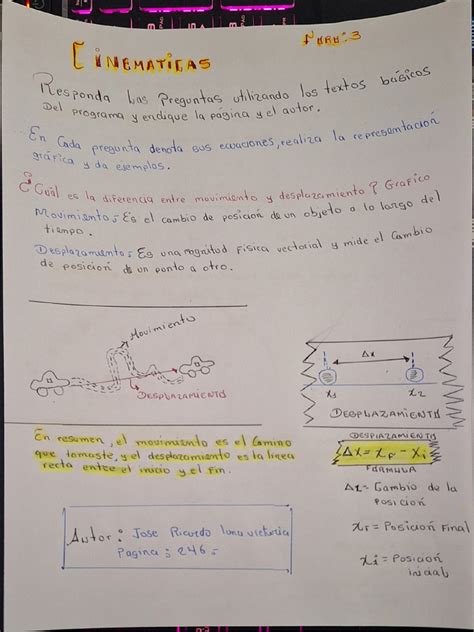 Foro: 3
CINEMATICAS
Responda las Preguntas utilizando los textos básicos
Del programa y endique la página y el autor.
En Cada pregunta denota sus ecuaciones, realiza la representación
gráfica y da ejemplos.
¿Cuál es la diferencia entre movimiento y desplazamiento? Grafico
Movimiento: Es el cambio de posición de un objeto a lo largo del
tiempo.
Desplazamiento: Es una magnitud Física vectorial y mide el Cambio
de posición de un punto a otro.
Movimiento
DESPLAZAMIENTO
Δx
x₁ x₂
DESPLAZAMIENTO
En resumen, el movimiento es el Camino
que tomaste, y el desplazamiento es la línea
recta entre el inicio y el Fin.
DESPLAZAMIENTO
Δx = xF - xi
FORMULA
Δx = Cambio de la
Posición
xF = Posición Final
xi = Posición
inicial
Autor: Jose Ricardo luna victoria
Pagina: 246